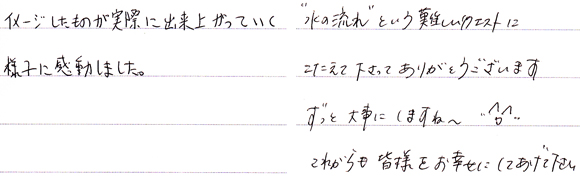 イメージしたものが実際に出来上がっていく
様子に感動しました。
"水の流れ"という難しいリクエストに
こたえて下さってありがとうございます
ずっと大事にしますね〜 ..^o^..
これからも皆様をお幸せにしてあげて下さい